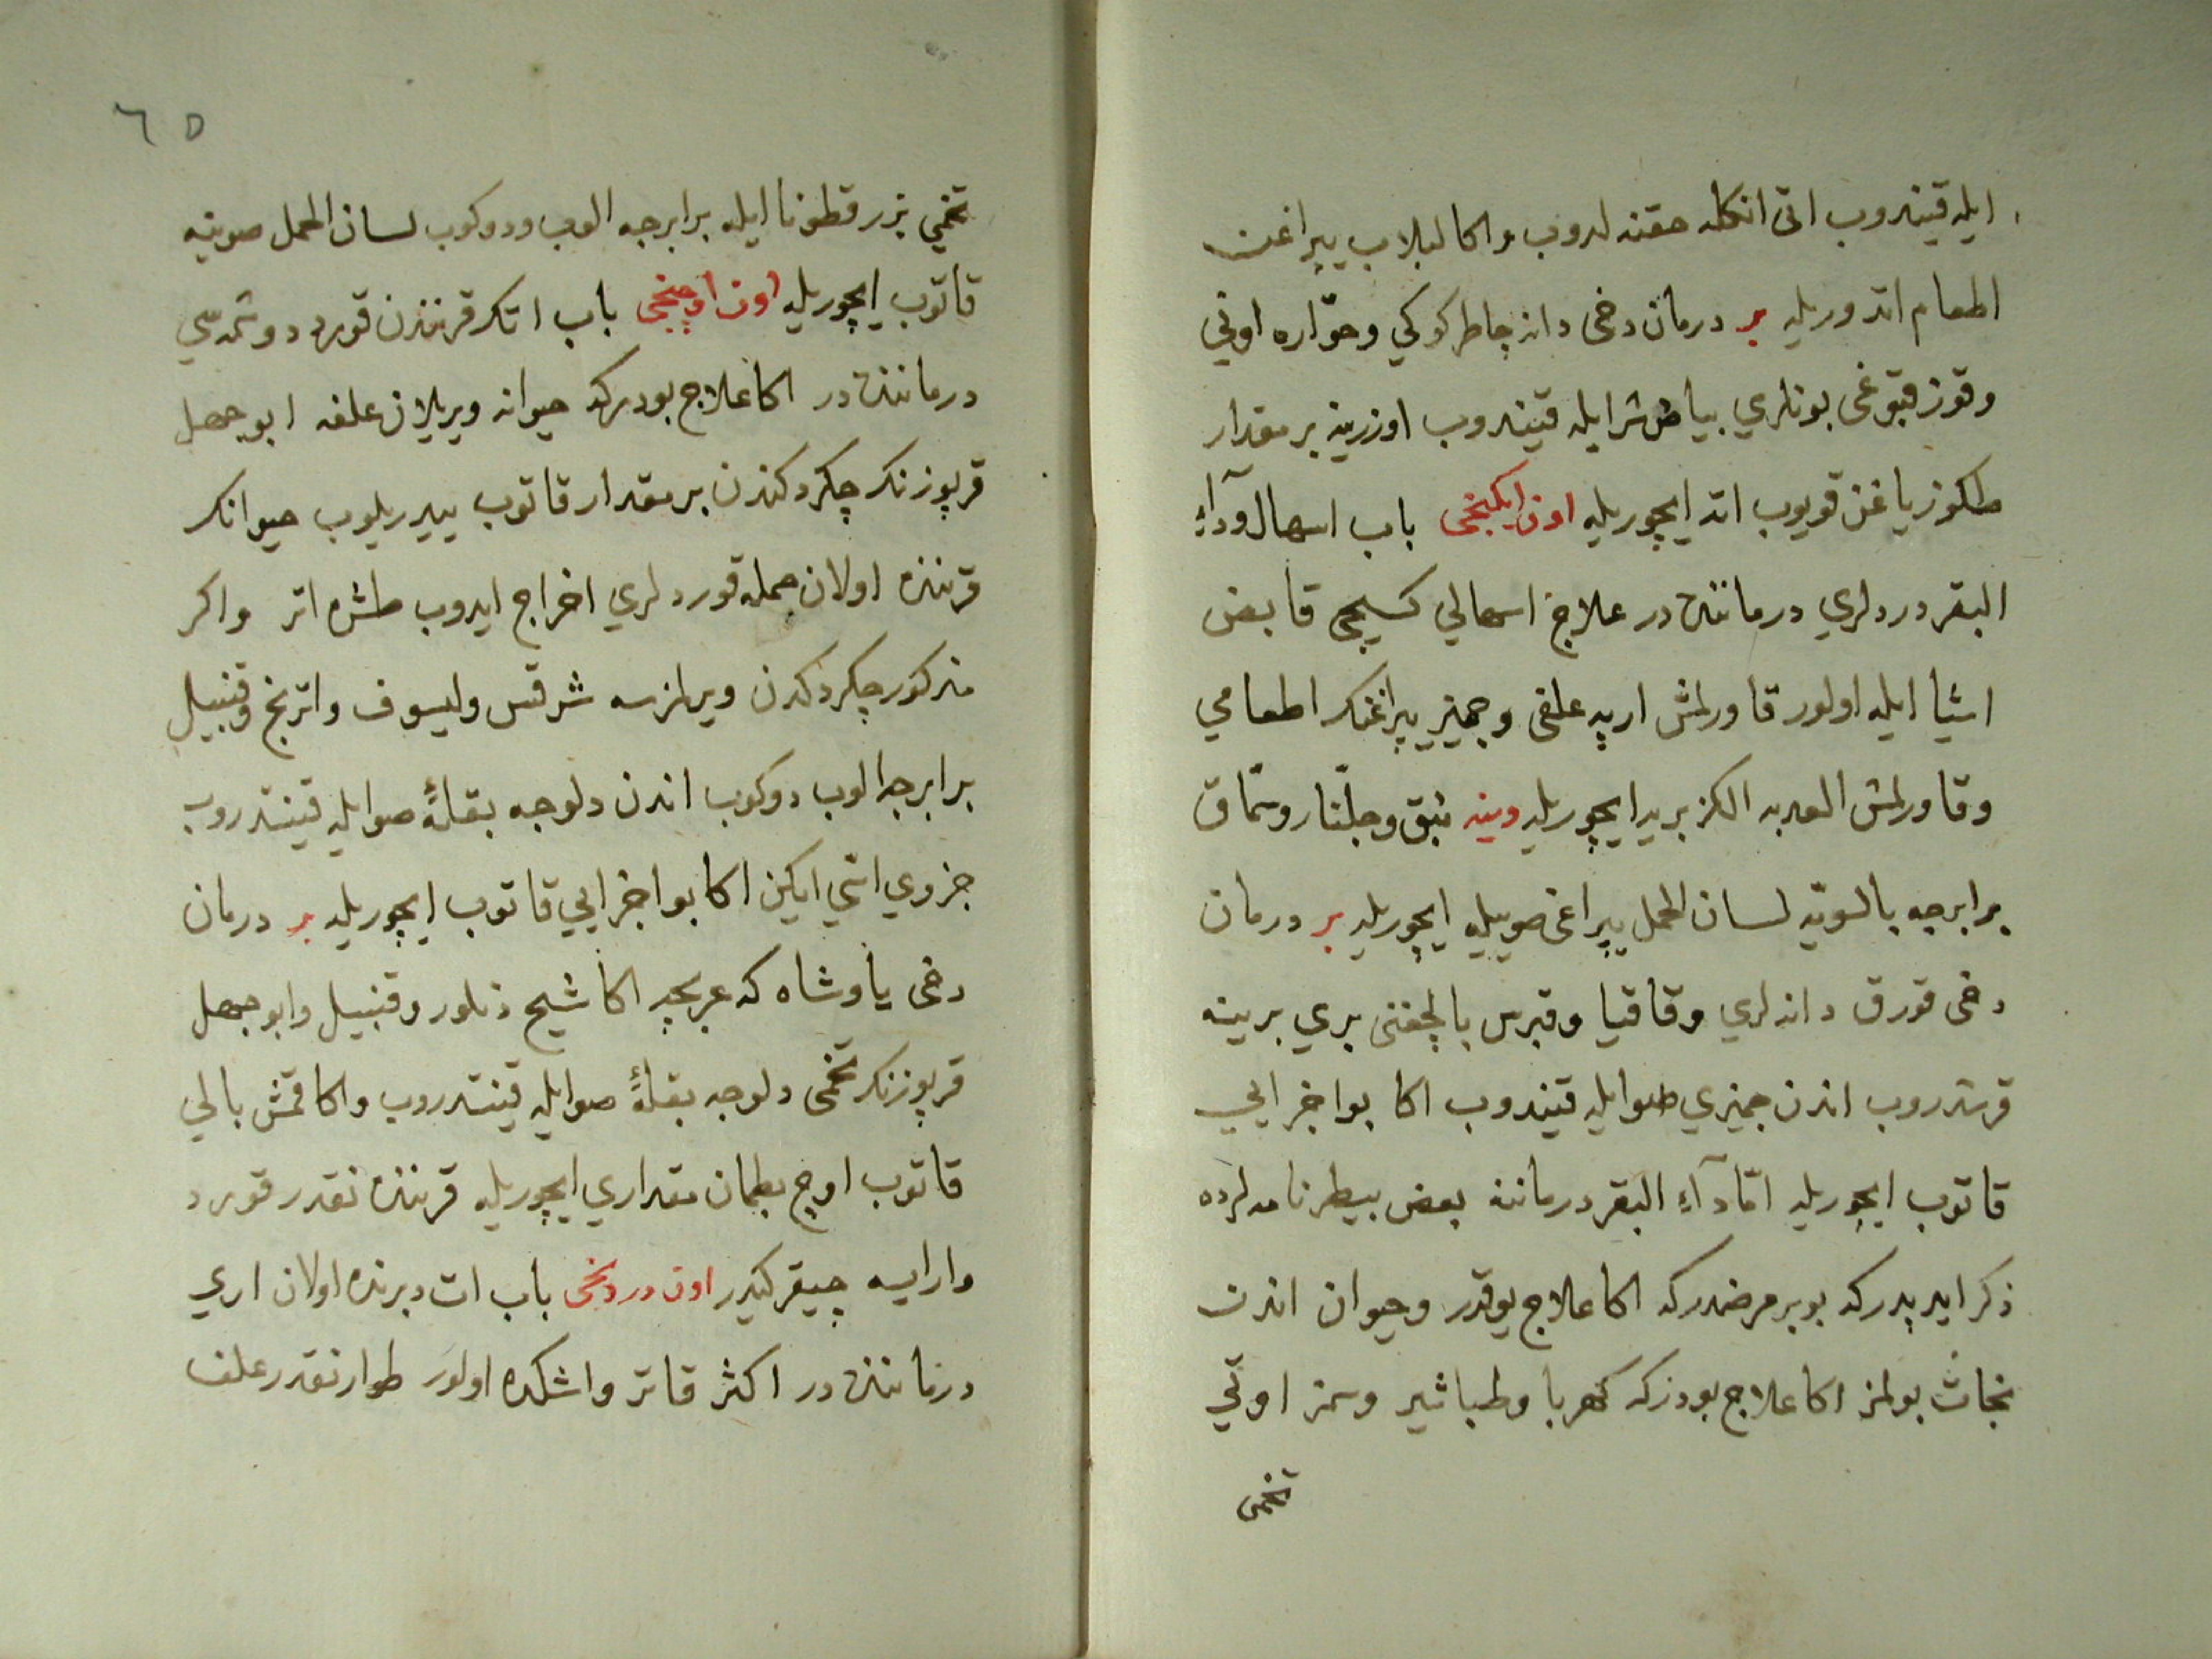 ايله قيندروب اتى انكله حقنه لدروب واكا لبلاب يپراغن
اطعام اتدوريله بر درمان دخى دانه چاطر كوكي وحوّاره اوتي
وقوز قبوغى بونلري بياض شرابله قيندروب اوزرينه بر مقدار
طكوز ياغن قويوب اته ايچوريله اون ايكنجى باب اسهال ودآء
البقر دردلري درماننده در علاج اسهالي كسيجى قابض
اشيا ايله اولور قاورلمش ارپه علفى وجميز يپراغنك اطعامي
وقاورلمش العدبه الكزبريه ايچوريله وينه نبق وجلّنار وسمّاق
برابرجه بالسويّه لسان الحمل يپراغى صوييله ايچوريله بر درمان
دخى قورق دانه لري وقاقيا وقبرس بالچغنى بري برينه
قرشدروب اندن جميزي صوايله قيندروب اكا بو اجزايي
قاتوب ايچوريله امّا دآء البقر درماننه بعض بيطرنامه لرده
ذكر ايدپدركه بو بر مرضدركه اكا علاج يوقدر وحيوان اندن
نجات بولمز اكا علاج بودركه كهربا وطباشير وسمز اوتي
تخمى
٦٥
تخمي بزر قطونا ايله برابرجه الوب ودوكوب لسان الحمل صوينه
قاتوب ايچوريله اون اوچنجى باب اتك قرنندن قورد دوشمه سي
درماننده در اكا علاج بودركه حيوانه ويريلان علفه ابو جهل
قرپوزنك چكردكندن بر مقدار قاتوب ييدريلوب حيوانك
قرننده اولان جمله قوردلري اخراج ايدوب طشره اتر واكر
مذكور چكردكدن ويرلمزسه شرقس وليسوف واترنج وقنبيل
برابرجه الوب دوكوب اندن دلوجه بقلةً صوايله قينتدروب
جزوي اتي ايكن اكا بو اجزايي قاتوب ايچوريله بر درمان
دخى ياوشاه كه عربجه اكا شيح ديلور وقنبيل وابو جهل
قرپوزنك تخمى دلوجه بقلةً صوايله قينتدروب واكا قمش بالي
قاتوب اوچ بطمان مقداري ايچوريله قرننده نقدر قورد
وارايسه چيقر كيدر اون دردنجى باب ات دبرنده اولان اري
درماننده در اكثر قاتر واشكده اولور طوار نقدر علف